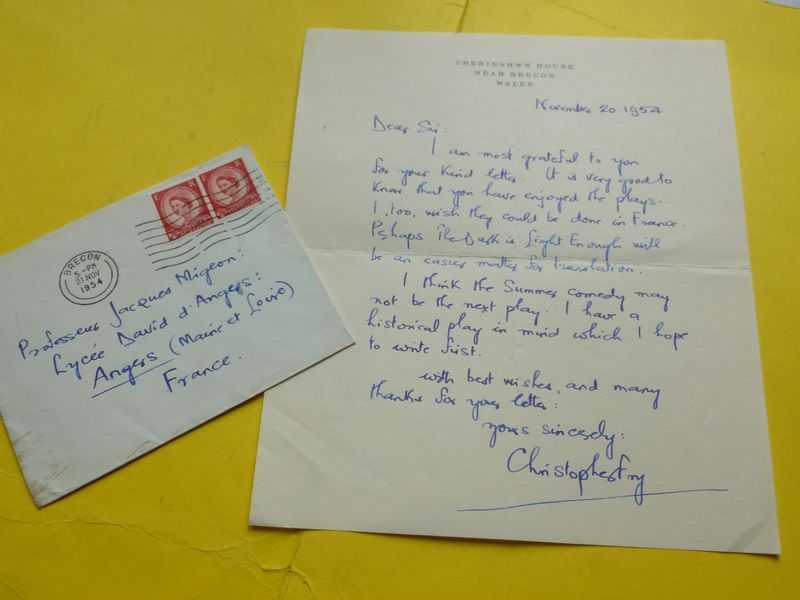 TREBINSHWN HOUSE
NEAR BRECON
WALES
November 20. 1954
Dear Sir:
I am most grateful to you
for your kind letter. It is very good to
know that you have enjoyed the plays.
I, too, wish they could be done in France.
Perhaps The Dark is Light Enough will
be an easier matter for translation.
I think the Summer comedy may
not be the next play. I have a
historical play in mind which I hope
to write first.
With best wishes, and many
thanks for your letter:
yours sincerely:
Christopher Fry
BRECON
5 - PM
21 NOV
1954
Professeur Jacques Migeon:
Lycée David d'Angers:
Angers (Maine et Loire)
France.